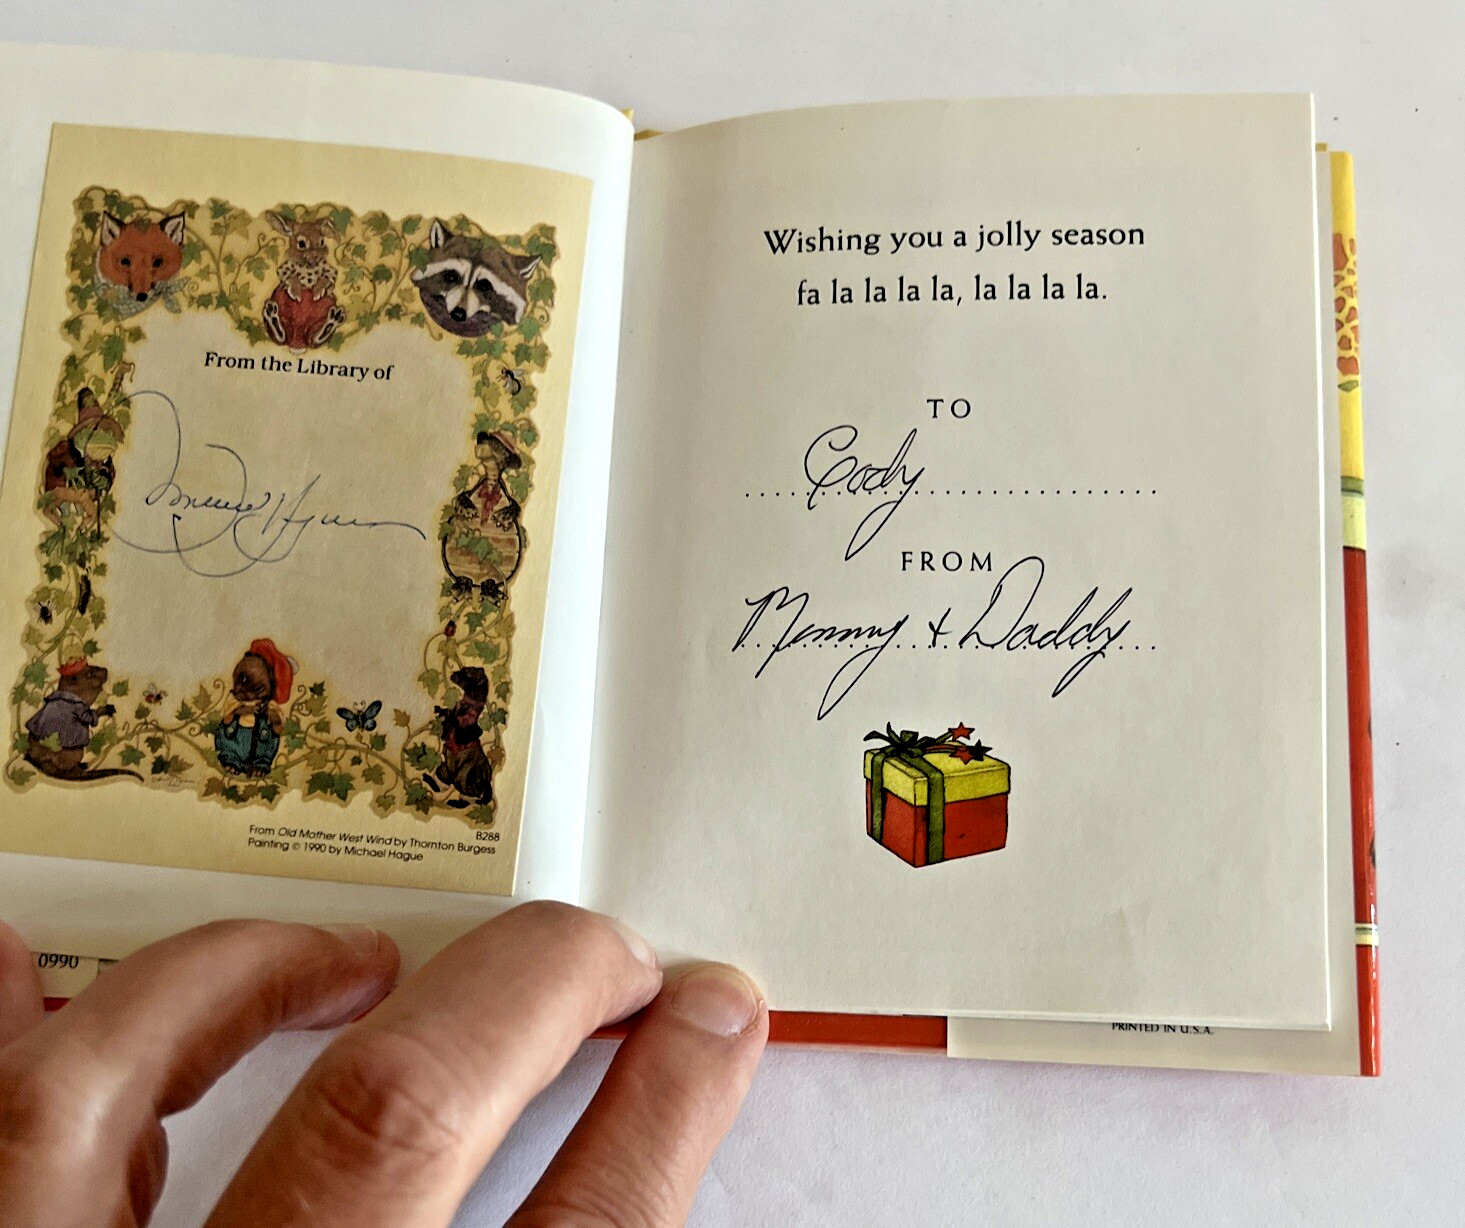 From the Library of
From Old Mother West Wind by Thornton Burgess
B288
Painting © 1990 by Michael Hague
0990
Wishing you a jolly season
fa la la la la, la la la la.
TO
Cody
FROM
Mommy + Daddy
PRINTED IN U.S.A.